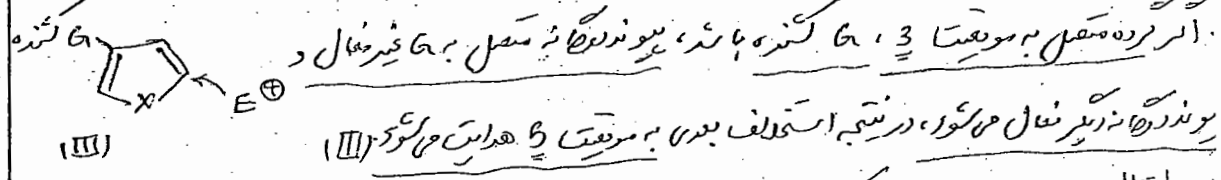 اگر گروه متصل به موقعیت 3، G کشنده باشد، پیوند دوگانه متصل به G غیرفعال و
پیوند دوگانه دیگر فعال می‌شود، در نتیجه استخلاف بعدی به موقعیت 5 هدایت می‌شود. (III)
G کشنده
X
E⊕
(III)